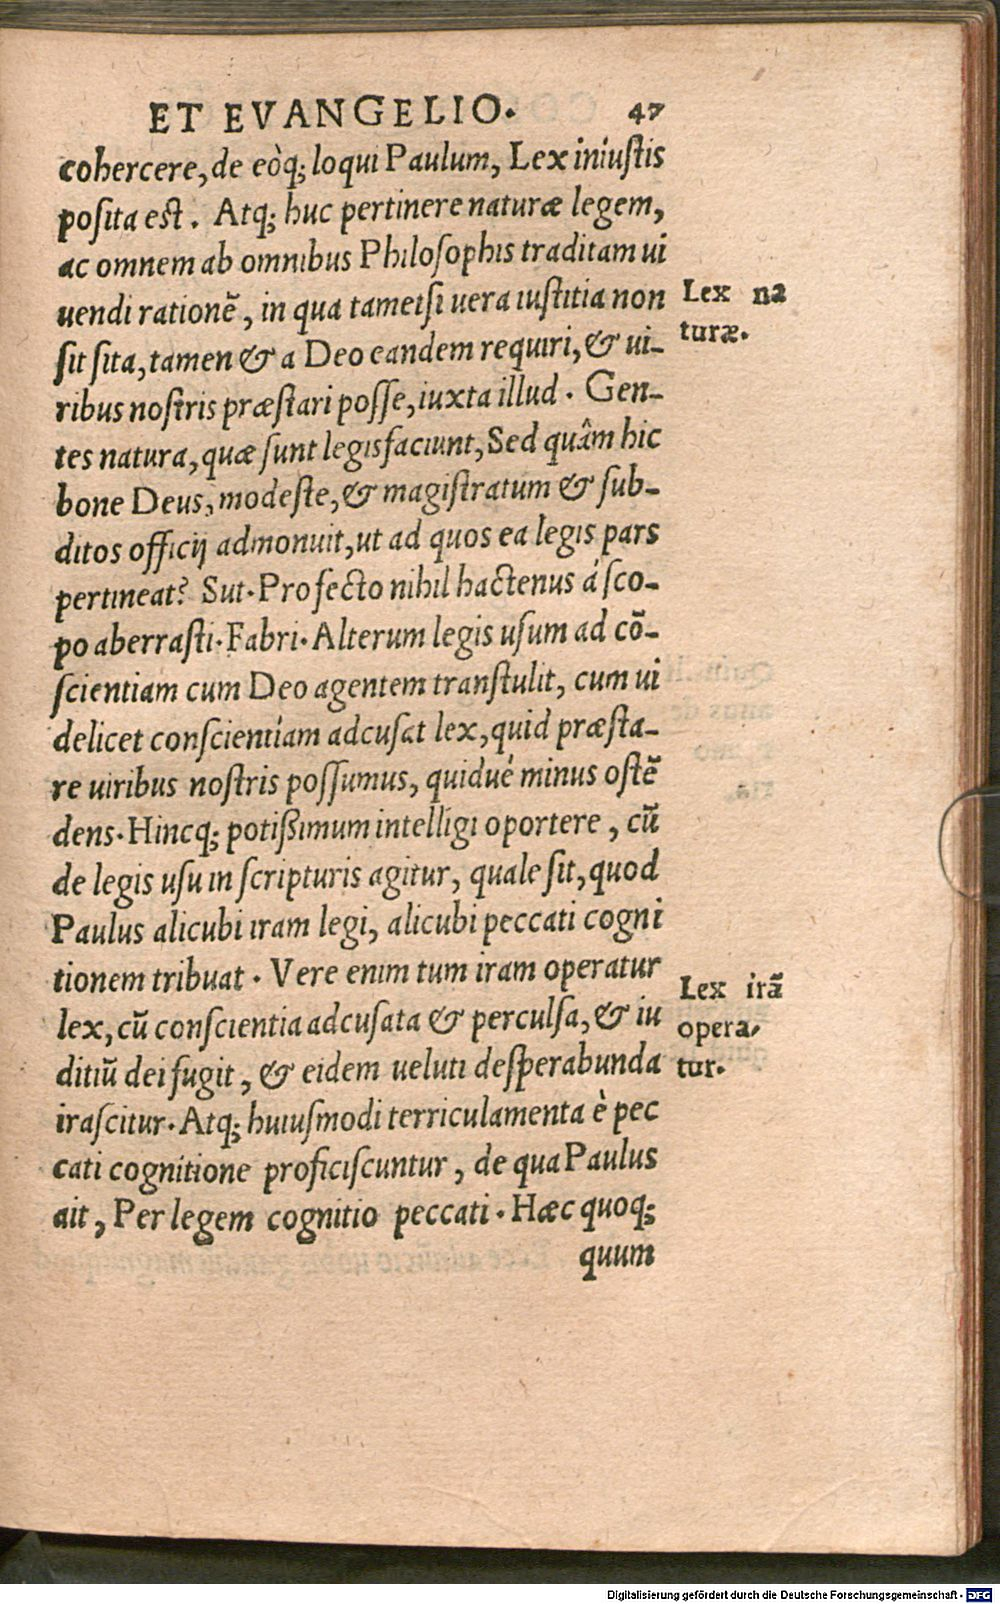 ET EVANGELIO. 47
cohercere, de eòq; loqui Paulum, Lex iniustis
posita est. Atq; huc pertinere naturæ legem,
ac omnem ab omnibus Philosophis traditam ui
uendi rationẽ, in qua tametsi uera iustitia non
Lex na
sit sita, tamen & a Deo eandem requiri, & ui-
turæ.
ribus nostris præstari posse, iuxta illud. Gen-
tes natura, quæ sunt legis faciunt, Sed quâm hic
bone Deus, modeste, & magistratum & sub-
ditos officij admonuit, ut ad quos ea legis pars
pertineat? Sut. Profecto nihil hactenus á sco-
po aberrasti. Fabri. Alterum legis usum ad cõ-
scientiam cum Deo agentem transtulit, cum ui
delicet conscientiam adcusat lex, quid præsta-
re uiribus nostris possumus, quidué minus ostẽ
dens. Hincq; potißimum intelligi oportere, cũ
de legis usu in scripturis agitur, quale sit, quod
Paulus alicubi iram legi, alicubi peccati cogni
tionem tribuat. Vere enim tum iram operatur
Lex irã
lex, cũ conscientia adcusata & perculsa, & iu
opera-
ditiũ dei fugit, & eidem ueluti desperabunda
tur.
irascitur. Atq; huiusmodi terriculamenta è pec
cati cognitione proficiscuntur, de qua Paulus
ait, Per legem cognitio peccati. Hæc quoq;
quum
Digitalisierung gefördert durch die Deutsche Forschungsgemeinschaft - DFG